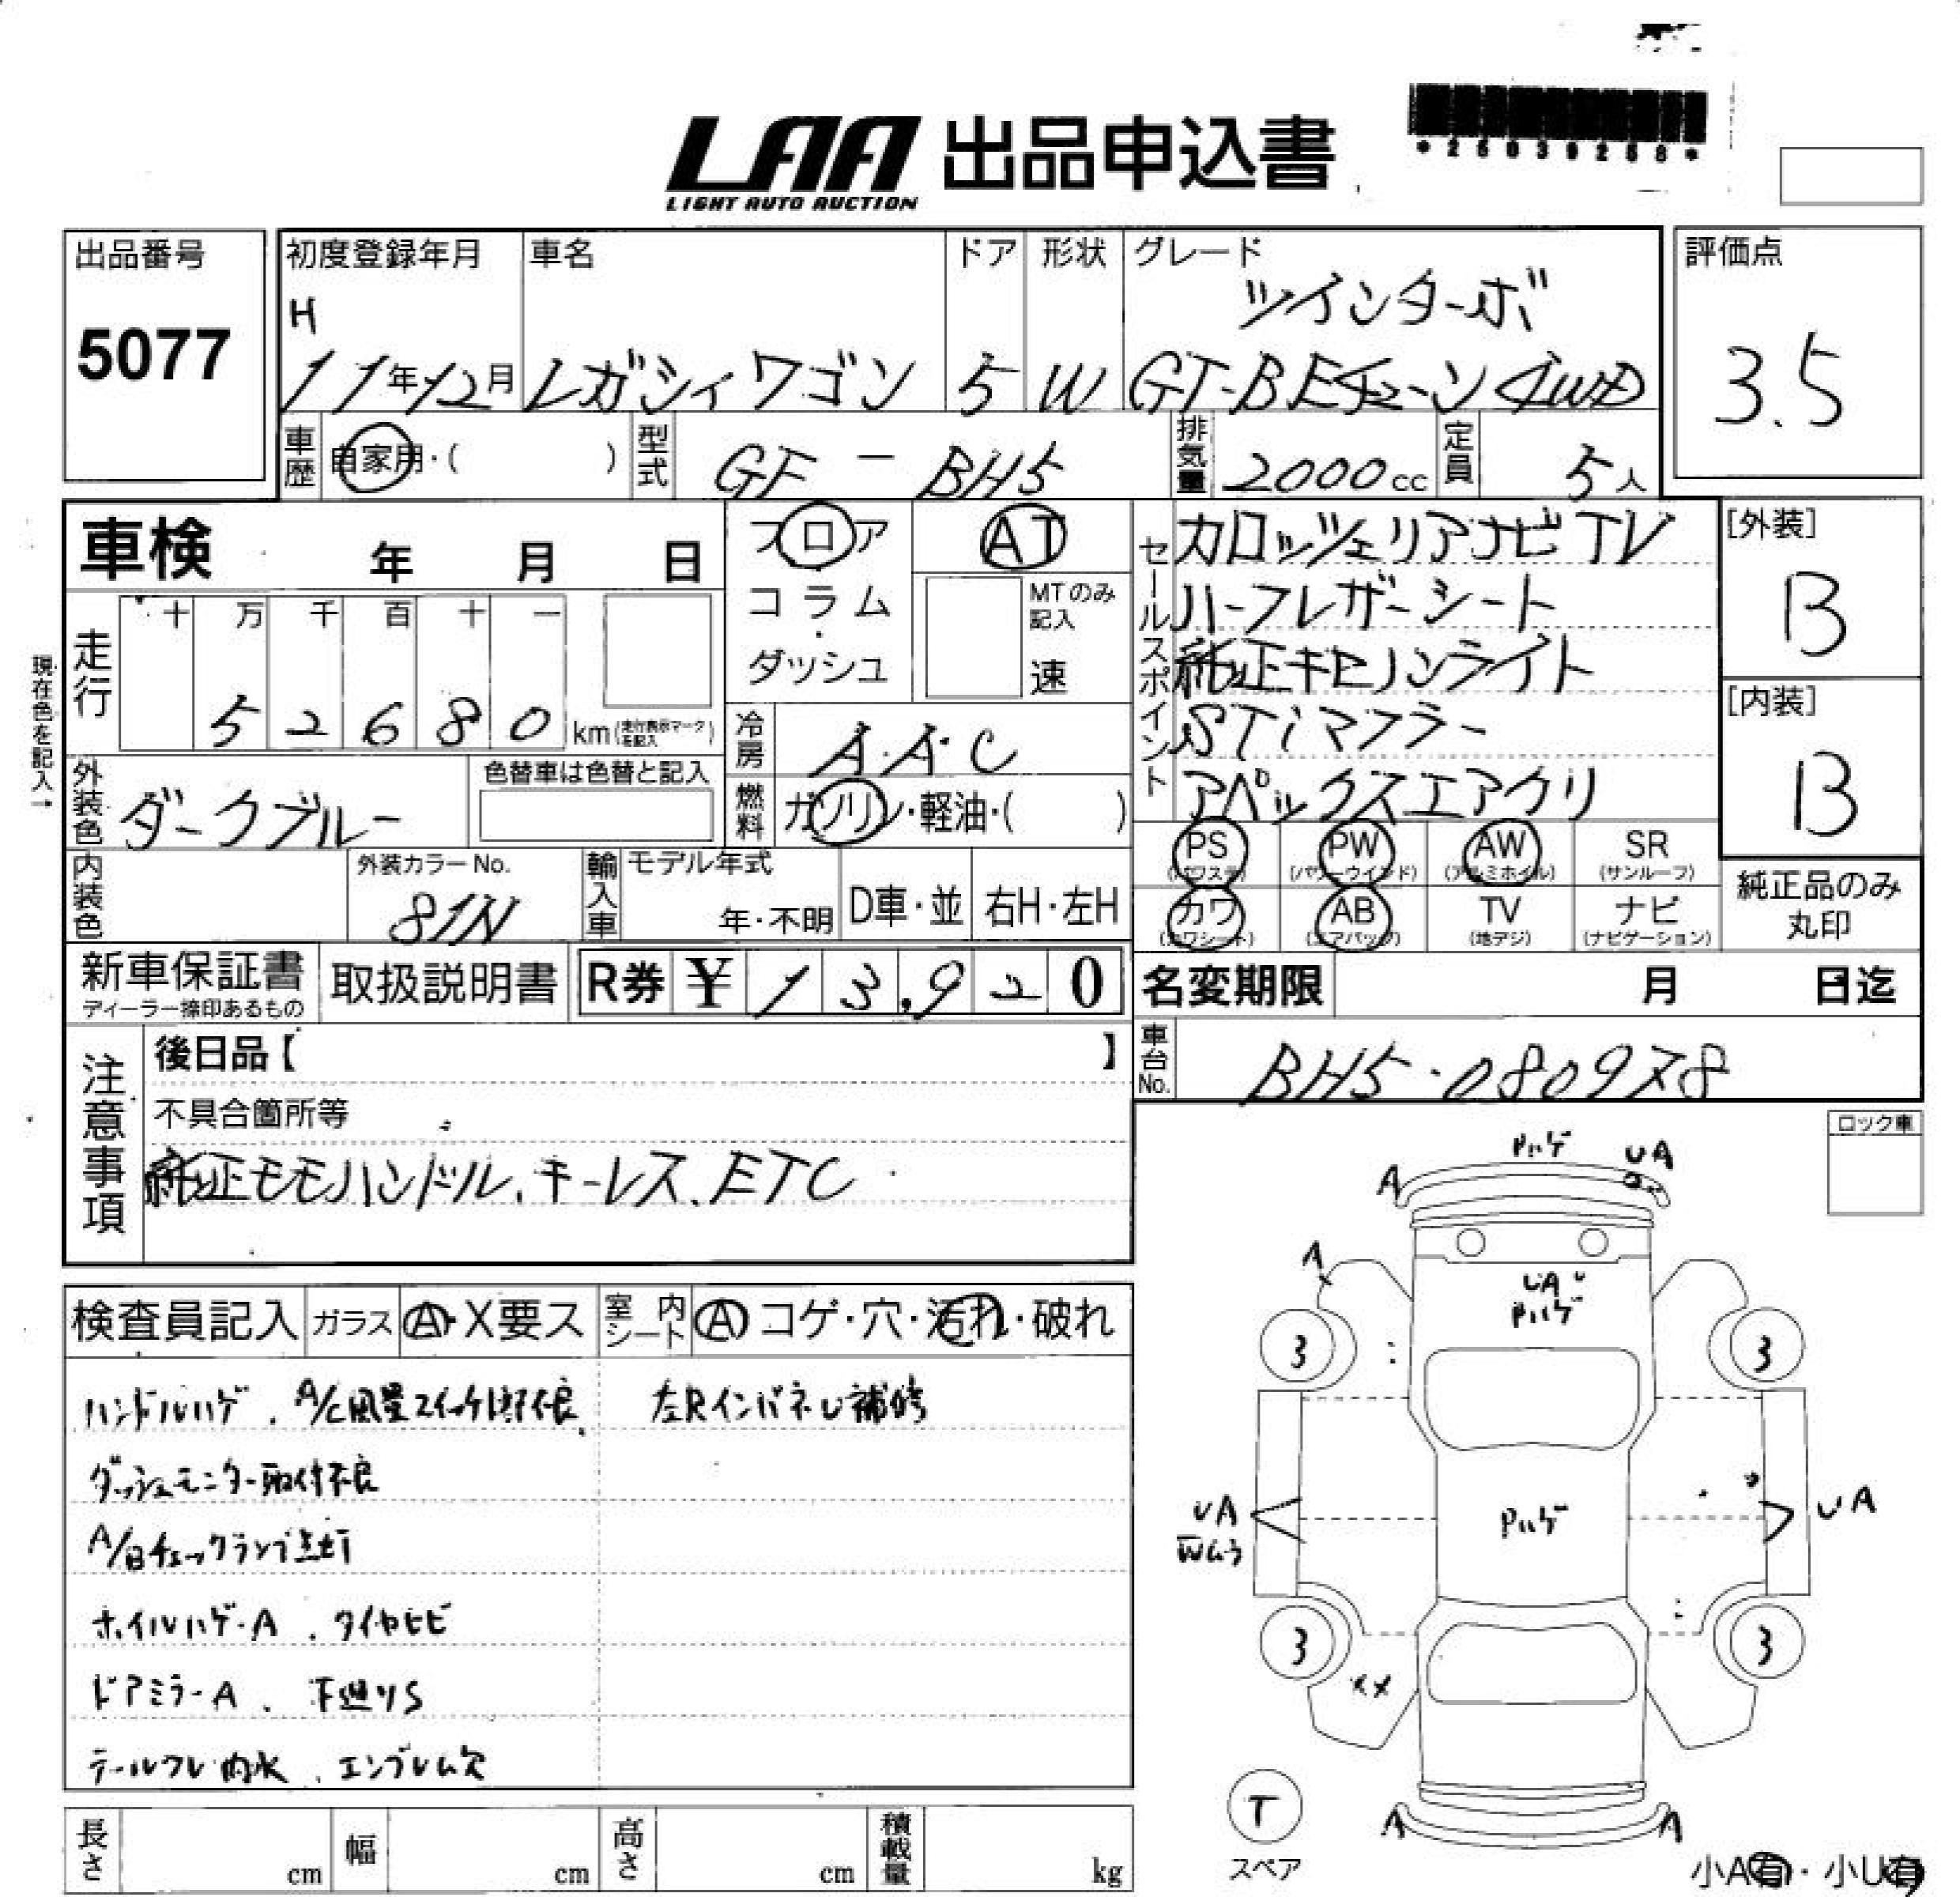 LAA 出品申込書
LIGHT AUTO AUCTION
出品番号
5077
初度登録年月
H
11年12月
車名
レガシィワゴン
ドア
5
形状
W
グレード
ツインターボ
GT-B Eチューン 4WD
評価点
3.5
車歴 自家用・( )
型式 GF — BH5
排気量 2000cc
定員 5人
車検 年 月 日
フロア
コラム
ダッシュ
AT
MTのみ記入
速
セールスポイント
カロッツェリアナビTV
ハーフレザーシート
純正キセノンライト
STiマフラー
アペックスエアクリ
[外装]
B
[内装]
B
現在色を記入→
走行
十 万 千 百 十 一
5 2 6 8 0 km
冷房 A・A・C
燃料 ガソリン・軽油・( )
外装色 ダークブルー
色替車は色替と記入
内装色
外装カラーNo.
81N
輸入車 モデル年式
年・不明
D車・並
右H・左H
PS (パワステ)
PW (パワーウインド)
AW (アルミホイル)
SR (サンルーフ)
カワ (カワシート)
AB (エアバック)
TV (地デジ)
ナビ (ナビゲーション)
純正品のみ
丸印
新車保証書
ディーラー捺印あるもの
取扱説明書
R券 ¥ 1 3,9 2 0
名変期限 月 日迄
車台No. BH5-080978
注意事項
後日品【 】
不具合箇所等
純正モモハンドル、キーレス、ETC
ロック車
検査員記入
ガラス A・X要ス
室内シート A コゲ・穴・汚れ・破れ
ハンドルハゲ、A/C風量スイッチ部不良、
左Rインパネし補修
ダッシュモニター取付不良
A/Bチェックランプ点灯
ホイルハゲ・A、タイヤヒビ
ドアミラーA、下廻りS
テールウレ内水、エンブレム欠
Pハゲ UA
A
A
UA
Pハゲ
3 3
UA
Wムラ
Pハゲ
UA
3 3
T
スペア
A A
小A有・小U有
長さ cm
幅 cm
高さ cm
積載量 kg